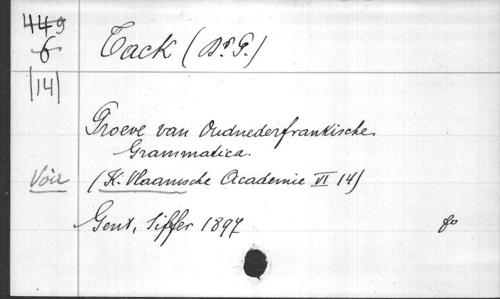 449
6
(14)
Tack (Dr P.)
Proeve van Oudnederfrankische
Grammatica.
Voir (K. Vlaamsche Academie VI 14)
Gent, Siffer 1897 fo